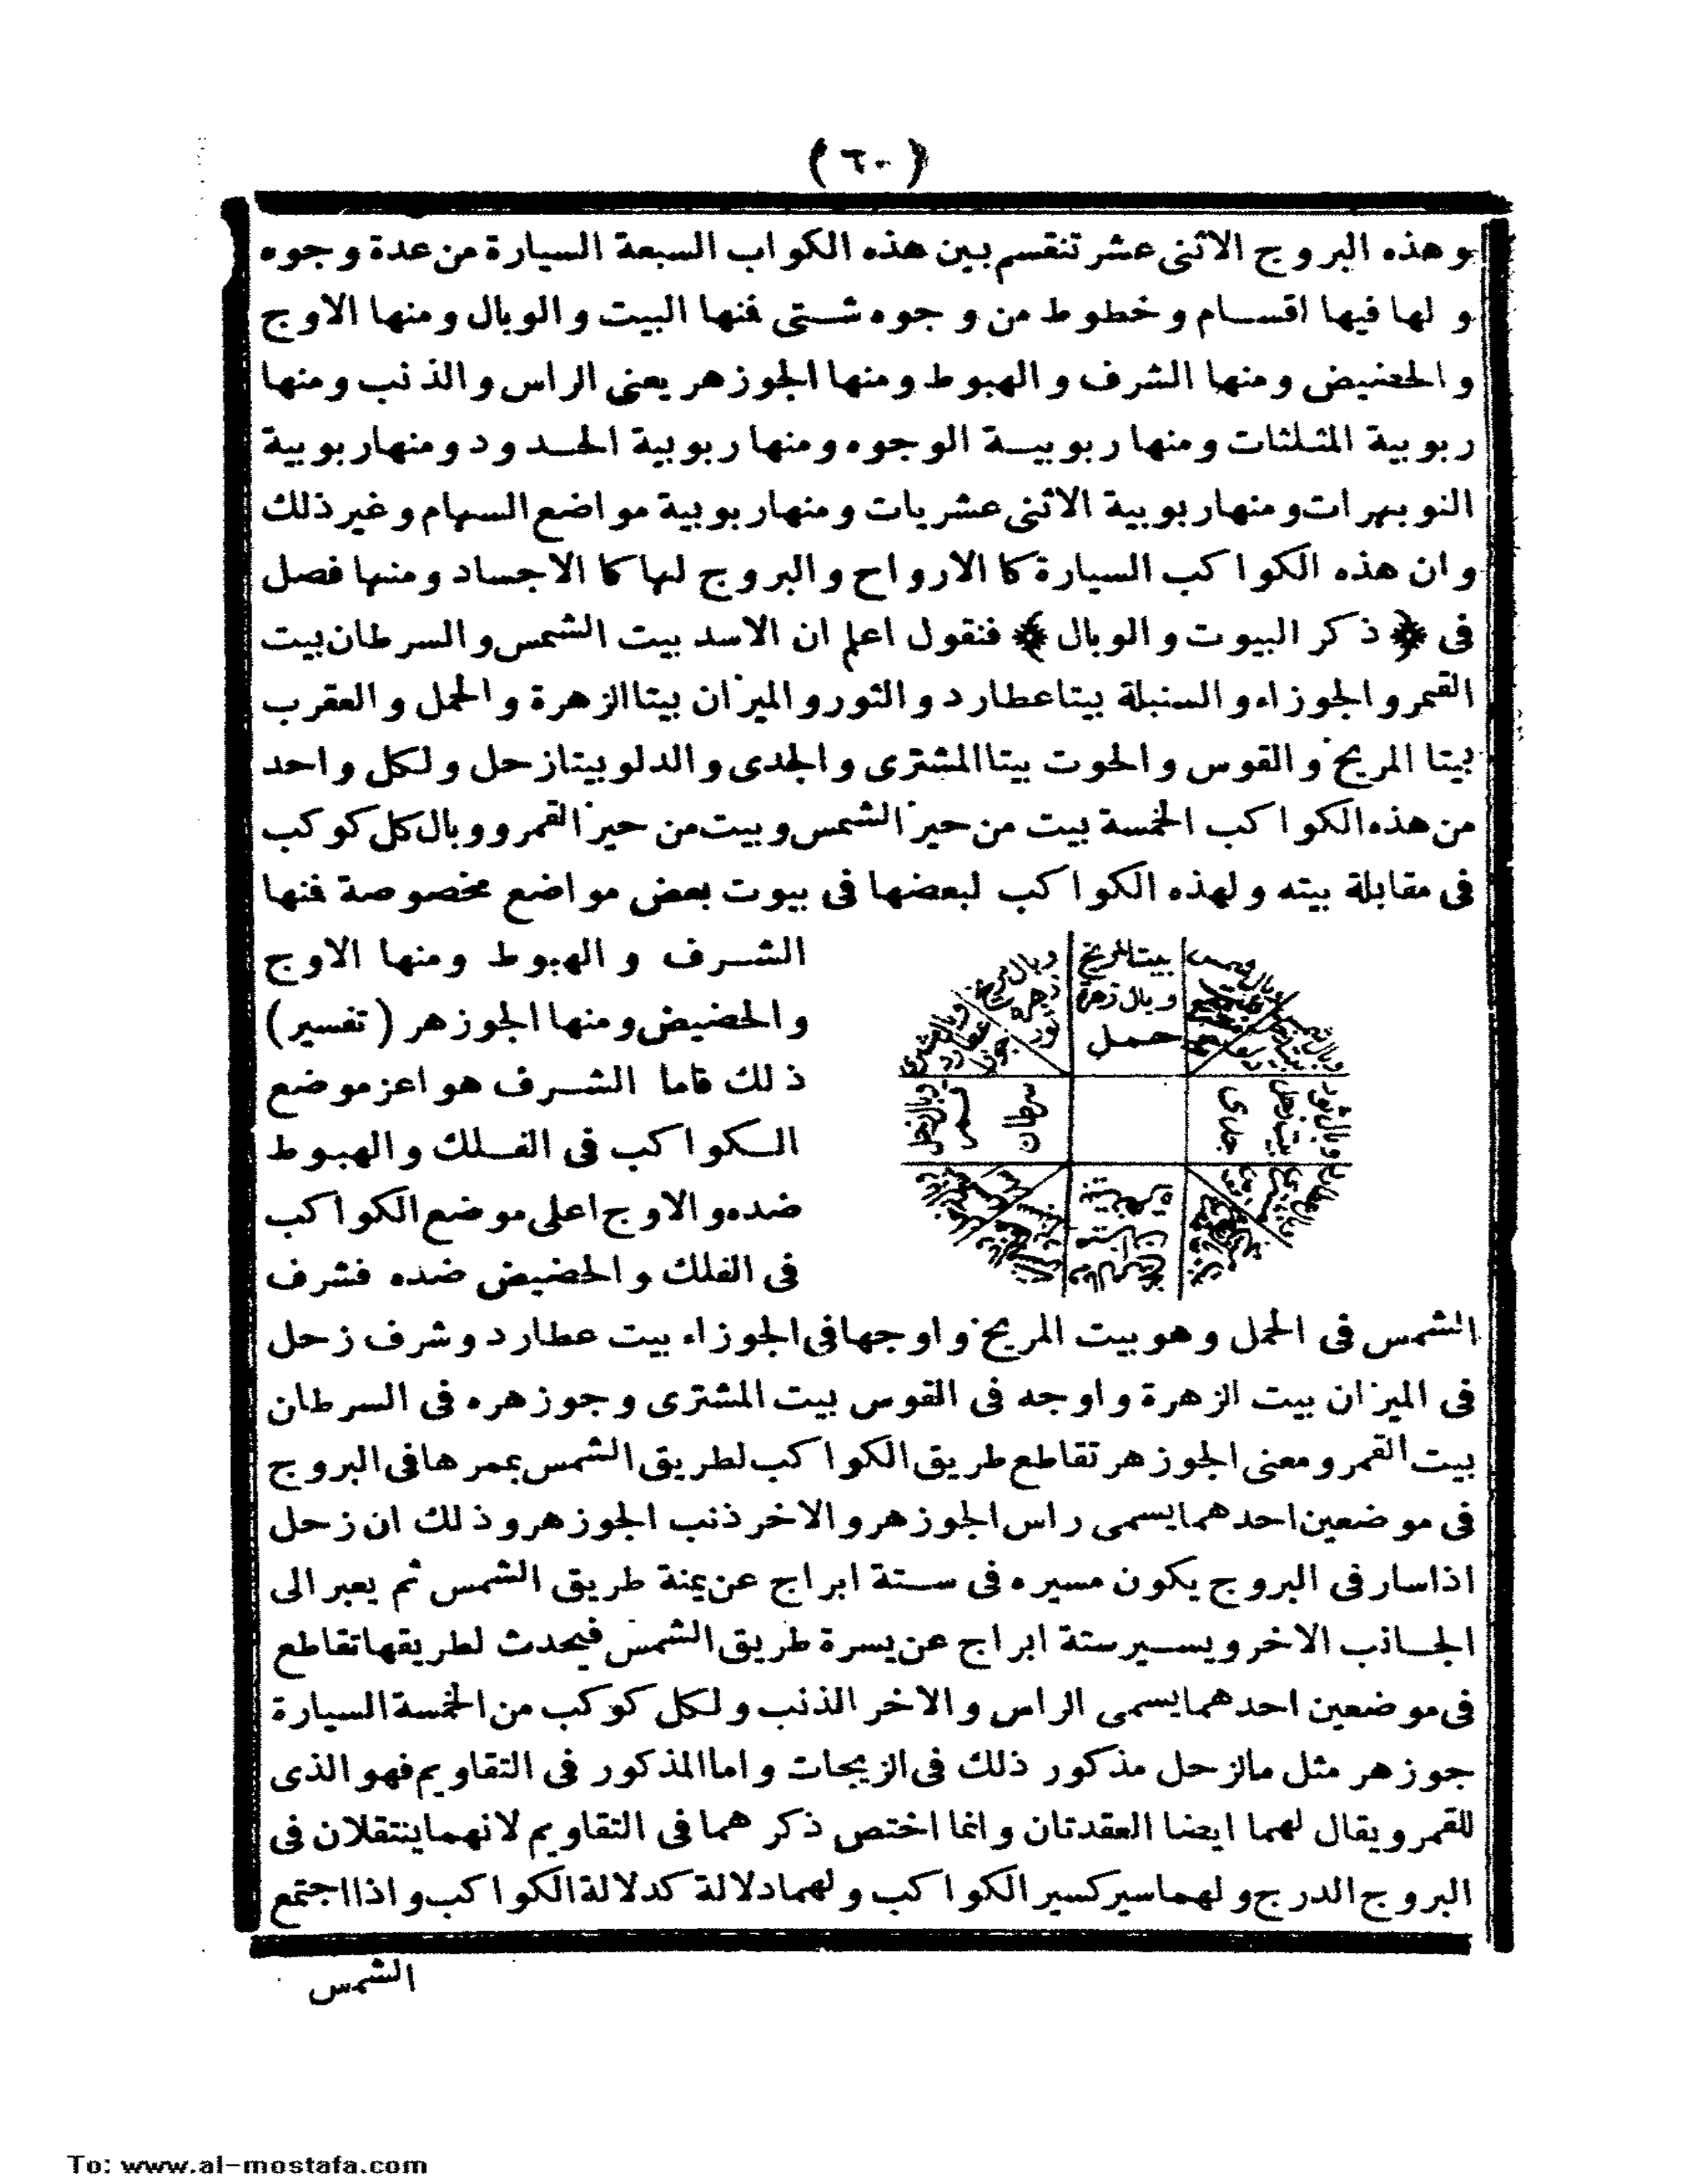 (٦٠)
و هذه البروج الاثنى عشر تنقسم بين هذه الكواب السبعة السيارة من عدة وجوه
و لها فيها اقسام و خطوط من وجوه شتى فنها البيت و الوبال ومنها الاوج
و الحضيض ومنها الشرف و الهبوط ومنها الجوزهر يعنى الراس والذنب ومنها
ربوبية المثلثات ومنها ربوبية الوجوه ومنها ربوبية الحدود ومنها ربوبية
النوبهرات ومنها ربوبية الاثنى عشريات ومنها ربوبية مواضع السهام وغير ذلك
و ان هذه الكواكب السيارة كا الارواح والبروج لها كا الاجساد ومنها فصل
فى ﴿ ذكر البيوت و الوبال ﴾ فنقول اعلم ان الاسد بيت الشمس والسرطان بيت
القمر والجوزاء والسنبلة بيتا عطارد والثور والميزان بيتا الزهرة والحمل والعقرب
بيتا المريخ والقوس والحوت بيتا المشترى والجدى والدلو بيتا زحل ولكل واحد
من هذه الكواكب الخمسة بيت من حيز الشمس وبيت من حيز القمر ووبال كل كوكب
فى مقابلة بيته ولهذه الكواكب لبعضها فى بيوت بعض مواضع مخصوصة فنها
الشرف و الهبوط ومنها الاوج
والحضيض ومنها الجوزهر (تفسير)
ذلك فاما الشرف هو اعز موضع
الكواكب فى الفلك والهبوط
ضده والاوج اعلى موضع الكواكب
فى الفلك والحضيض ضده فشرف
بيتا المريخ
وبال زهرة
حمل
ثور
سرطان
جدى
بيت زحل
الشمس فى الحمل وهو بيت المريخ واوجها فى الجوزاء بيت عطارد وشرف زحل
فى الميزان بيت الزهرة واوجه فى القوس بيت المشترى وجوزهره فى السرطان
بيت القمر ومعنى الجوزهر تقاطع طريق الكواكب لطريق الشمس بممرها فى البروج
فى موضعين احدهما يسمى راس الجوزهر والاخر ذنب الجوزهر وذلك ان زحل
اذا سار فى البروج يكون مسيره فى ستة ابراج عن يمنة طريق الشمس ثم يعبر الى
الجانب الاخر ويسير ستة ابراج عن يسرة طريق الشمس فيحدث لطريقها تقاطع
فى موضعين احدهما يسمى الراس والاخر الذنب ولكل كوكب من الخمسة السيارة
جوزهر مثل مالزحل مذكور ذلك فى الزيجات واما المذكور فى التقاويم فهو الذى
للقمر ويقال لهما ايضا العقدتان وانما اختص ذكرهما فى التقاويم لانهما ينتقلان فى
البروج الدرج ولهما سير كسير الكواكب ولهما دلالة كدلالة الكواكب واذا اجتمع
الشمس
To: www.al-mostafa.com